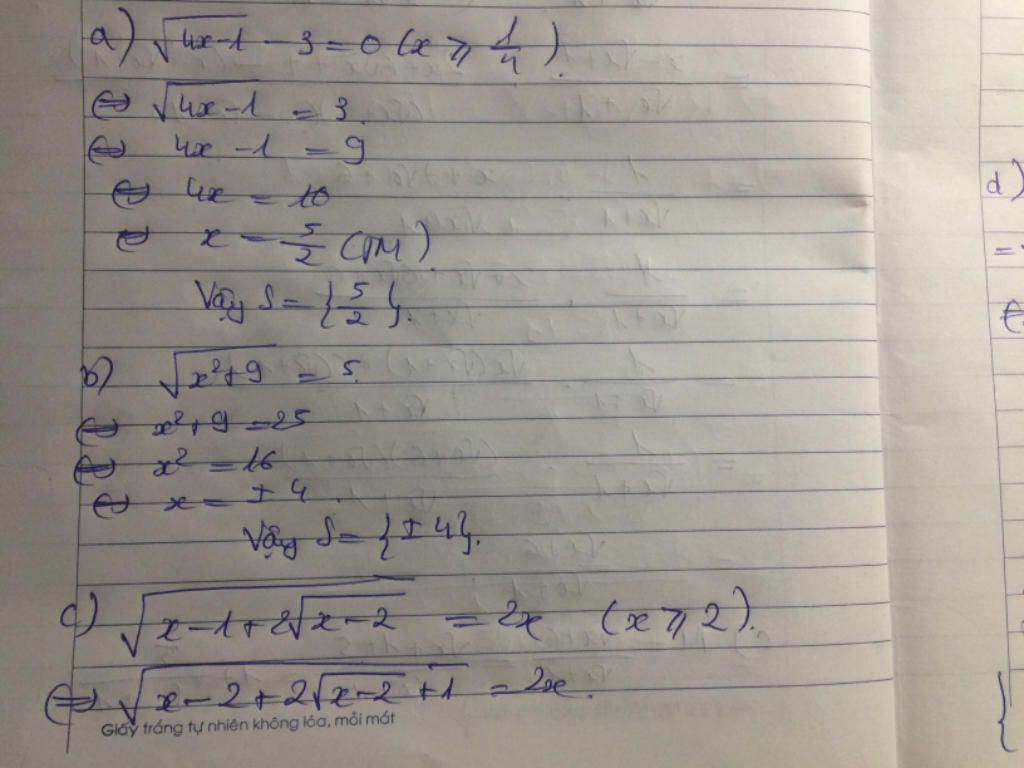 a) √(4x-1) - 3 = 0 (x ⩾ 1/4).
⇔ √(4x-1) = 3.
⇔ 4x - 1 = 9
⇔ 4x = 10
⇔ x = 5/2 (TM).
Vậy S = {5/2}.
b) √(x²+9) = 5.
⇔ x²+9 = 25
⇔ x² = 16
⇔ x = ±4.
Vậy S = {±4}.
c) √(x-1+2√(x-2)) = 2x (x ⩾ 2).
⇔ √(x-2+2√(x-2)+1) = 2x.
Giấy trắng tự nhiên không lóa, mỏi mắt
d)
=